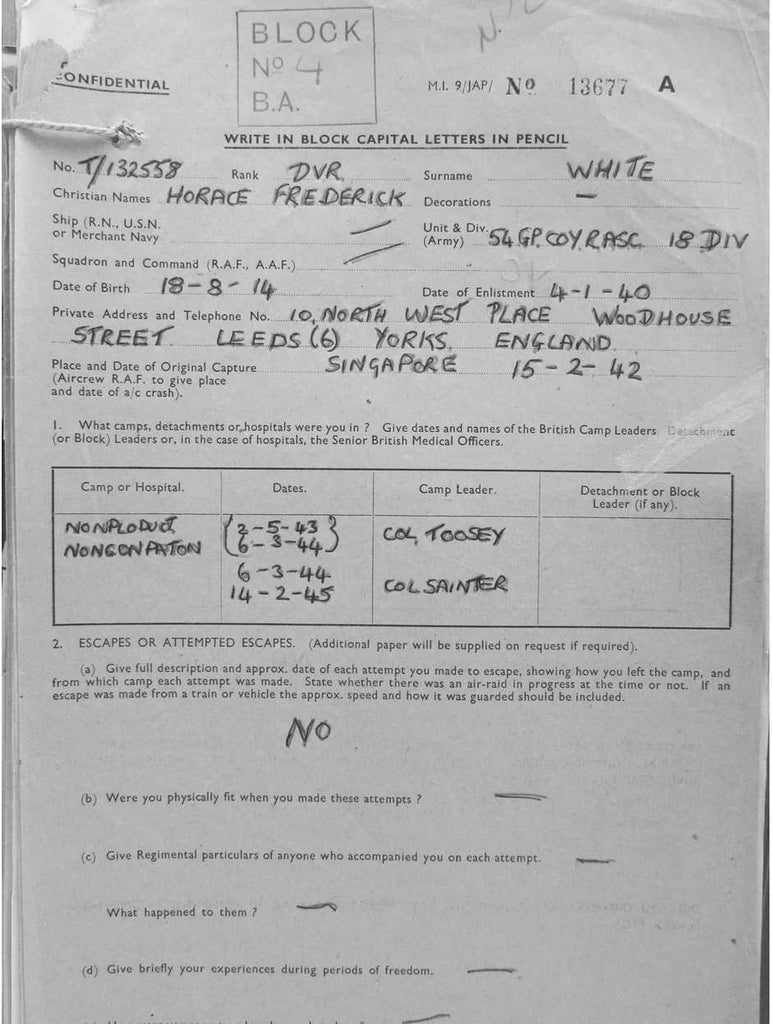 BLOCK
Nº 4
B.A.
CONFIDENTIAL
M.I. 9/JAP/ Nº 13677 A
WRITE IN BLOCK CAPITAL LETTERS IN PENCIL
No. T/132558 Rank DVR Surname WHITE
Christian Names HORACE FREDERICK Decorations —
Ship (R.N., U.S.N.
or Merchant Navy
Unit & Div.
(Army) 54 GP. COY, R,ASC. 18 DIV
Squadron and Command (R.A.F., A.A.F.)
Date of Birth 18-8-14 Date of Enlistment 4-1-40
Private Address and Telephone No. 10, NORTH WEST PLACE WOODHOUSE
STREET LEEDS (6) YORKS, ENGLAND
Place and Date of Original Capture SINGAPORE 15-2-42
(Aircrew R.A.F. to give place
and date of a/c crash).
1. What camps, detachments or hospitals were you in ? Give dates and names of the British Camp Leaders. Detachment
(or Block) Leaders or, in the case of hospitals, the Senior British Medical Officers.
Camp or Hospital. Dates. Camp Leader. Detachment or Block
Leader (if any).
NONPLODUCT, 2-5-43 COL, TOOSEY
NONGONPATON 6-3-44
6-3-44
14-2-45 COL SAINTER
2. ESCAPES OR ATTEMPTED ESCAPES. (Additional paper will be supplied on request if required).
(a) Give full description and approx. date of each attempt you made to escape, showing how you left the camp, and
from which camp each attempt was made. State whether there was an air-raid in progress at the time or not. If an
escape was made from a train or vehicle the approx. speed and how it was guarded should be included.
NO
(b) Were you physically fit when you made these attempts ? —
(c) Give Regimental particulars of anyone who accompanied you on each attempt. —
What happened to them ? —
(d) Give briefly your experiences during periods of freedom. —